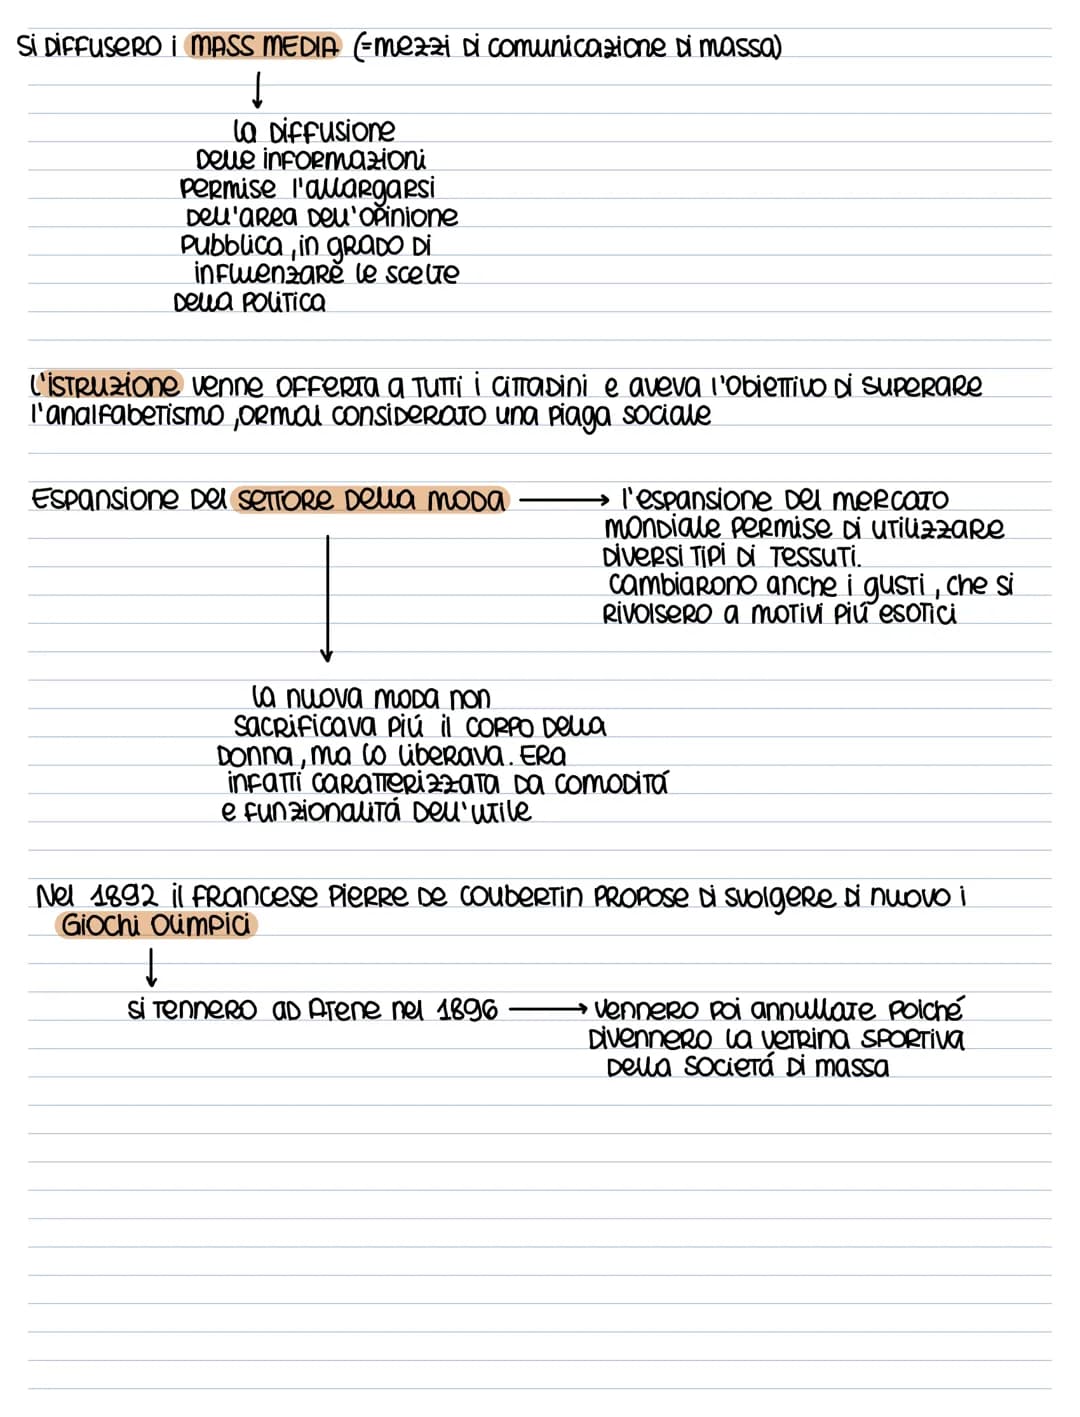 Si diffusero i MASS MEDIA (=mezzi di comunicazione di massa)
la diffusione
delle informazioni
permise l'allargarsi
dell'area dell'opinione
pubblica, in grado di
influenzare le scelte
della politica
L'istruzione venne offerta a tutti i cittadini e aveva l'obiettivo di superare
l'analfabetismo, ormai considerato una piaga sociale
Espansione del settore della moda
l'espansione del mercato
mondiale permise di utilizzare
diversi tipi di tessuti.
Cambiarono anche i gusti, che si
rivolsero a motivi piú esotici
la nuova moda non
sacrificava piú il corpo della
donna, ma lo liberava. Era
infatti caratterizzata da comoditá
e funzionalitá dell'utile
Nel 1892 il francese Pierre de Coubertin propose di svolgere di nuovo i
Giochi Olimpici
si tennero ad Atene nel 1896
vennero poi annullate poiché
divennero la vetrina sportiva
della societá di massa